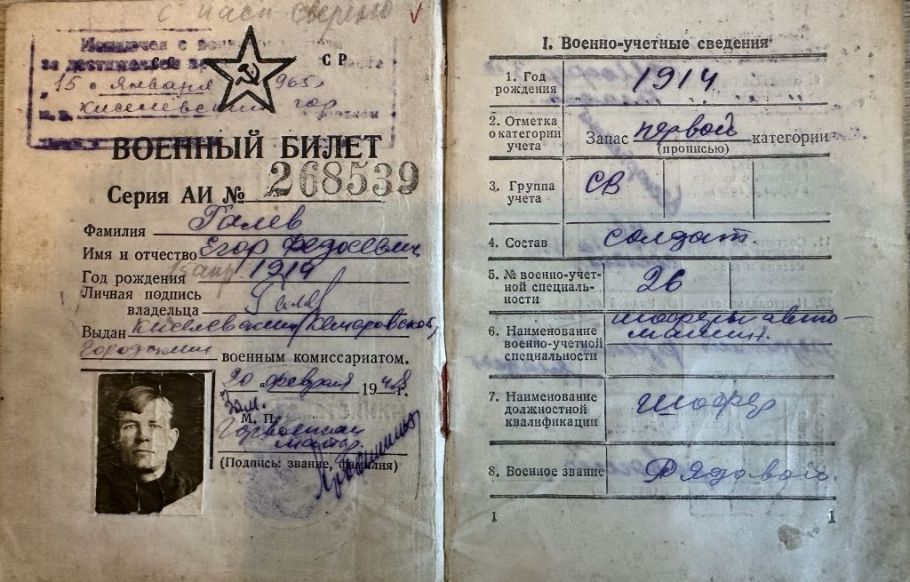 с пасп сверено
за достижением
15 января 1965
Киселевский гор
СР
ВОЕННЫЙ БИЛЕТ
Серия АИ № 268539
Фамилия Галев
Имя и отчество Егор Федосеевич
Год рождения 1914
Личная подпись
владельца
Выдан Киселевским
Городским военным комиссариатом.
20 „февраля 1948 г.
М. П.
(Подпись: звание, фамилия)
I. Военно-учетные сведения
1. Год
рождения 1914
2. Отметка
о категории
учета
Запас первой категории
(прописью)
3. Группа
учета СВ
4. Состав солдат.
5. № военно-учет-
ной специаль-
ности 26
6. Наименование
военно-учетной
специальности
шоферы авто-
машин.
7. Наименование
должностной
квалификации шофер
8. Военное звание Рядовой.
1 1